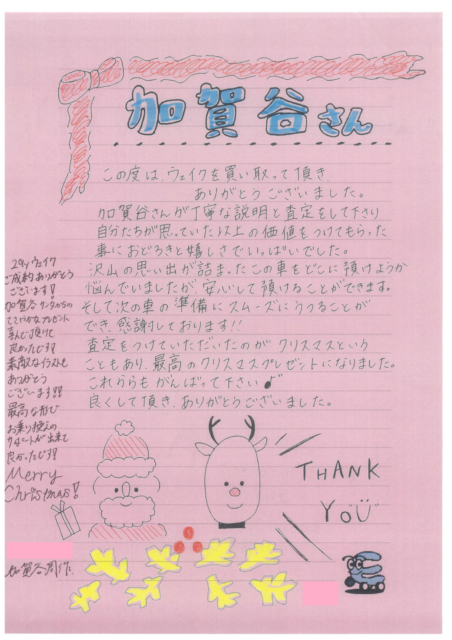 加賀谷さん
この度は、ウェイクを買い取って頂き
ありがとうございました。
加賀谷さんが丁寧な説明と査定をして下さり
自分たちが思っていた以上の価値をつけてもらった
事におどろきと嬉しさでいっぱいでした。
沢山の思い出が詰まったこの車をどこに預けようか
悩んでいましたが、安心して預けることができます。
そして次の車の準備にスムーズにうつることが
でき、感謝しております!!
査定をつけていただいたのがクリスマスという
こともあり、最高のクリスマスプレゼントになりました。
これからもがんばって下さい♪
良くして頂き、ありがとうございました。
THANK
YOU
ウェイク
ご成約ありがとう
ございます!
加賀谷サンタからの
ささやかなプレゼント
喜んで頂けて
良かったです!!
素敵なイラストも
ありがとう
ございます!!!
最高な形で
お乗り換えの
サポートが出来て
良かったです!!
Merry
Christmas!!
加賀谷